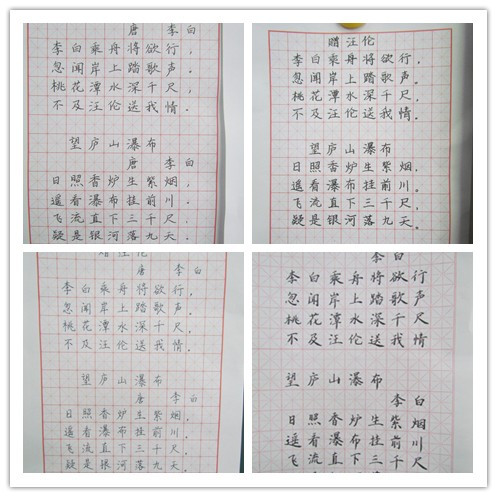 唐 李白
李白乘舟将欲行，
忽闻岸上踏歌声。
桃花潭水深千尺，
不及汪伦送我情。
望庐山瀑布
唐 李白
日照香炉生紫烟，
遥看瀑布挂前川。
飞流直下三千尺，
疑是银河落九天。
赠汪伦
李白乘舟将欲行，
忽闻岸上踏歌声。
桃花潭水深千尺，
不及汪伦送我情。
望庐山瀑布
日照香炉生紫烟，
遥看瀑布挂前川。
飞流直下三千尺，
疑是银河落九天。
赠汪伦
唐 李白
李白乘舟将欲行，
忽闻岸上踏歌声。
桃花潭水深千尺，
不及汪伦送我情。
望庐山瀑布
唐 李白
日照香炉生紫烟，
遥看瀑布挂前川。
飞流直下三千尺，
疑是银河落九天。
李白
李白乘舟将欲行
忽闻岸上踏歌声
桃花潭水深千尺
不及汪伦送我情
望庐山瀑布
李白
日照香炉生紫烟
遥看瀑布挂前川
飞流直下三千尺